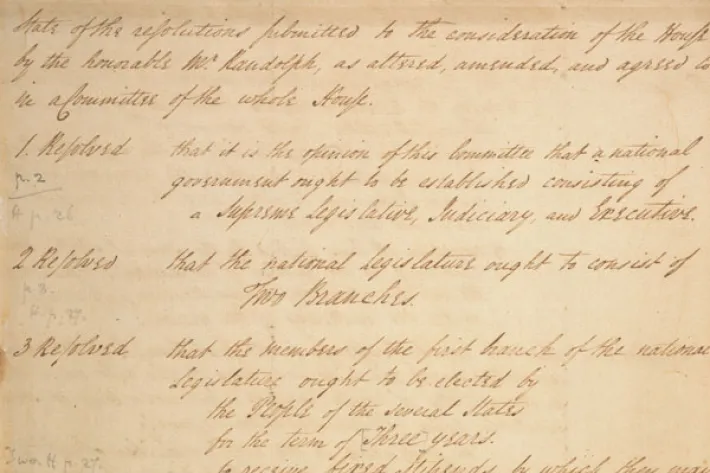 State of the resolutions submitted to the consideration of the House
by the honorable Mr. Randolph, as altered, amended, and agreed to
in a Committee of the whole House.
1. Resolved that it is the opinion of this Committee that a national
p. 2
government ought to be established consisting of
a Supreme Legislative, Judiciary, and Executive.
2 Resolved that the national Legislature ought to consist of
Two Branches.
3 Resolved that the members of the first branch of the national
Legislature ought to be elected by
the People of the several States
for the term of Three years.
to receive fixed Stipends, by which they may